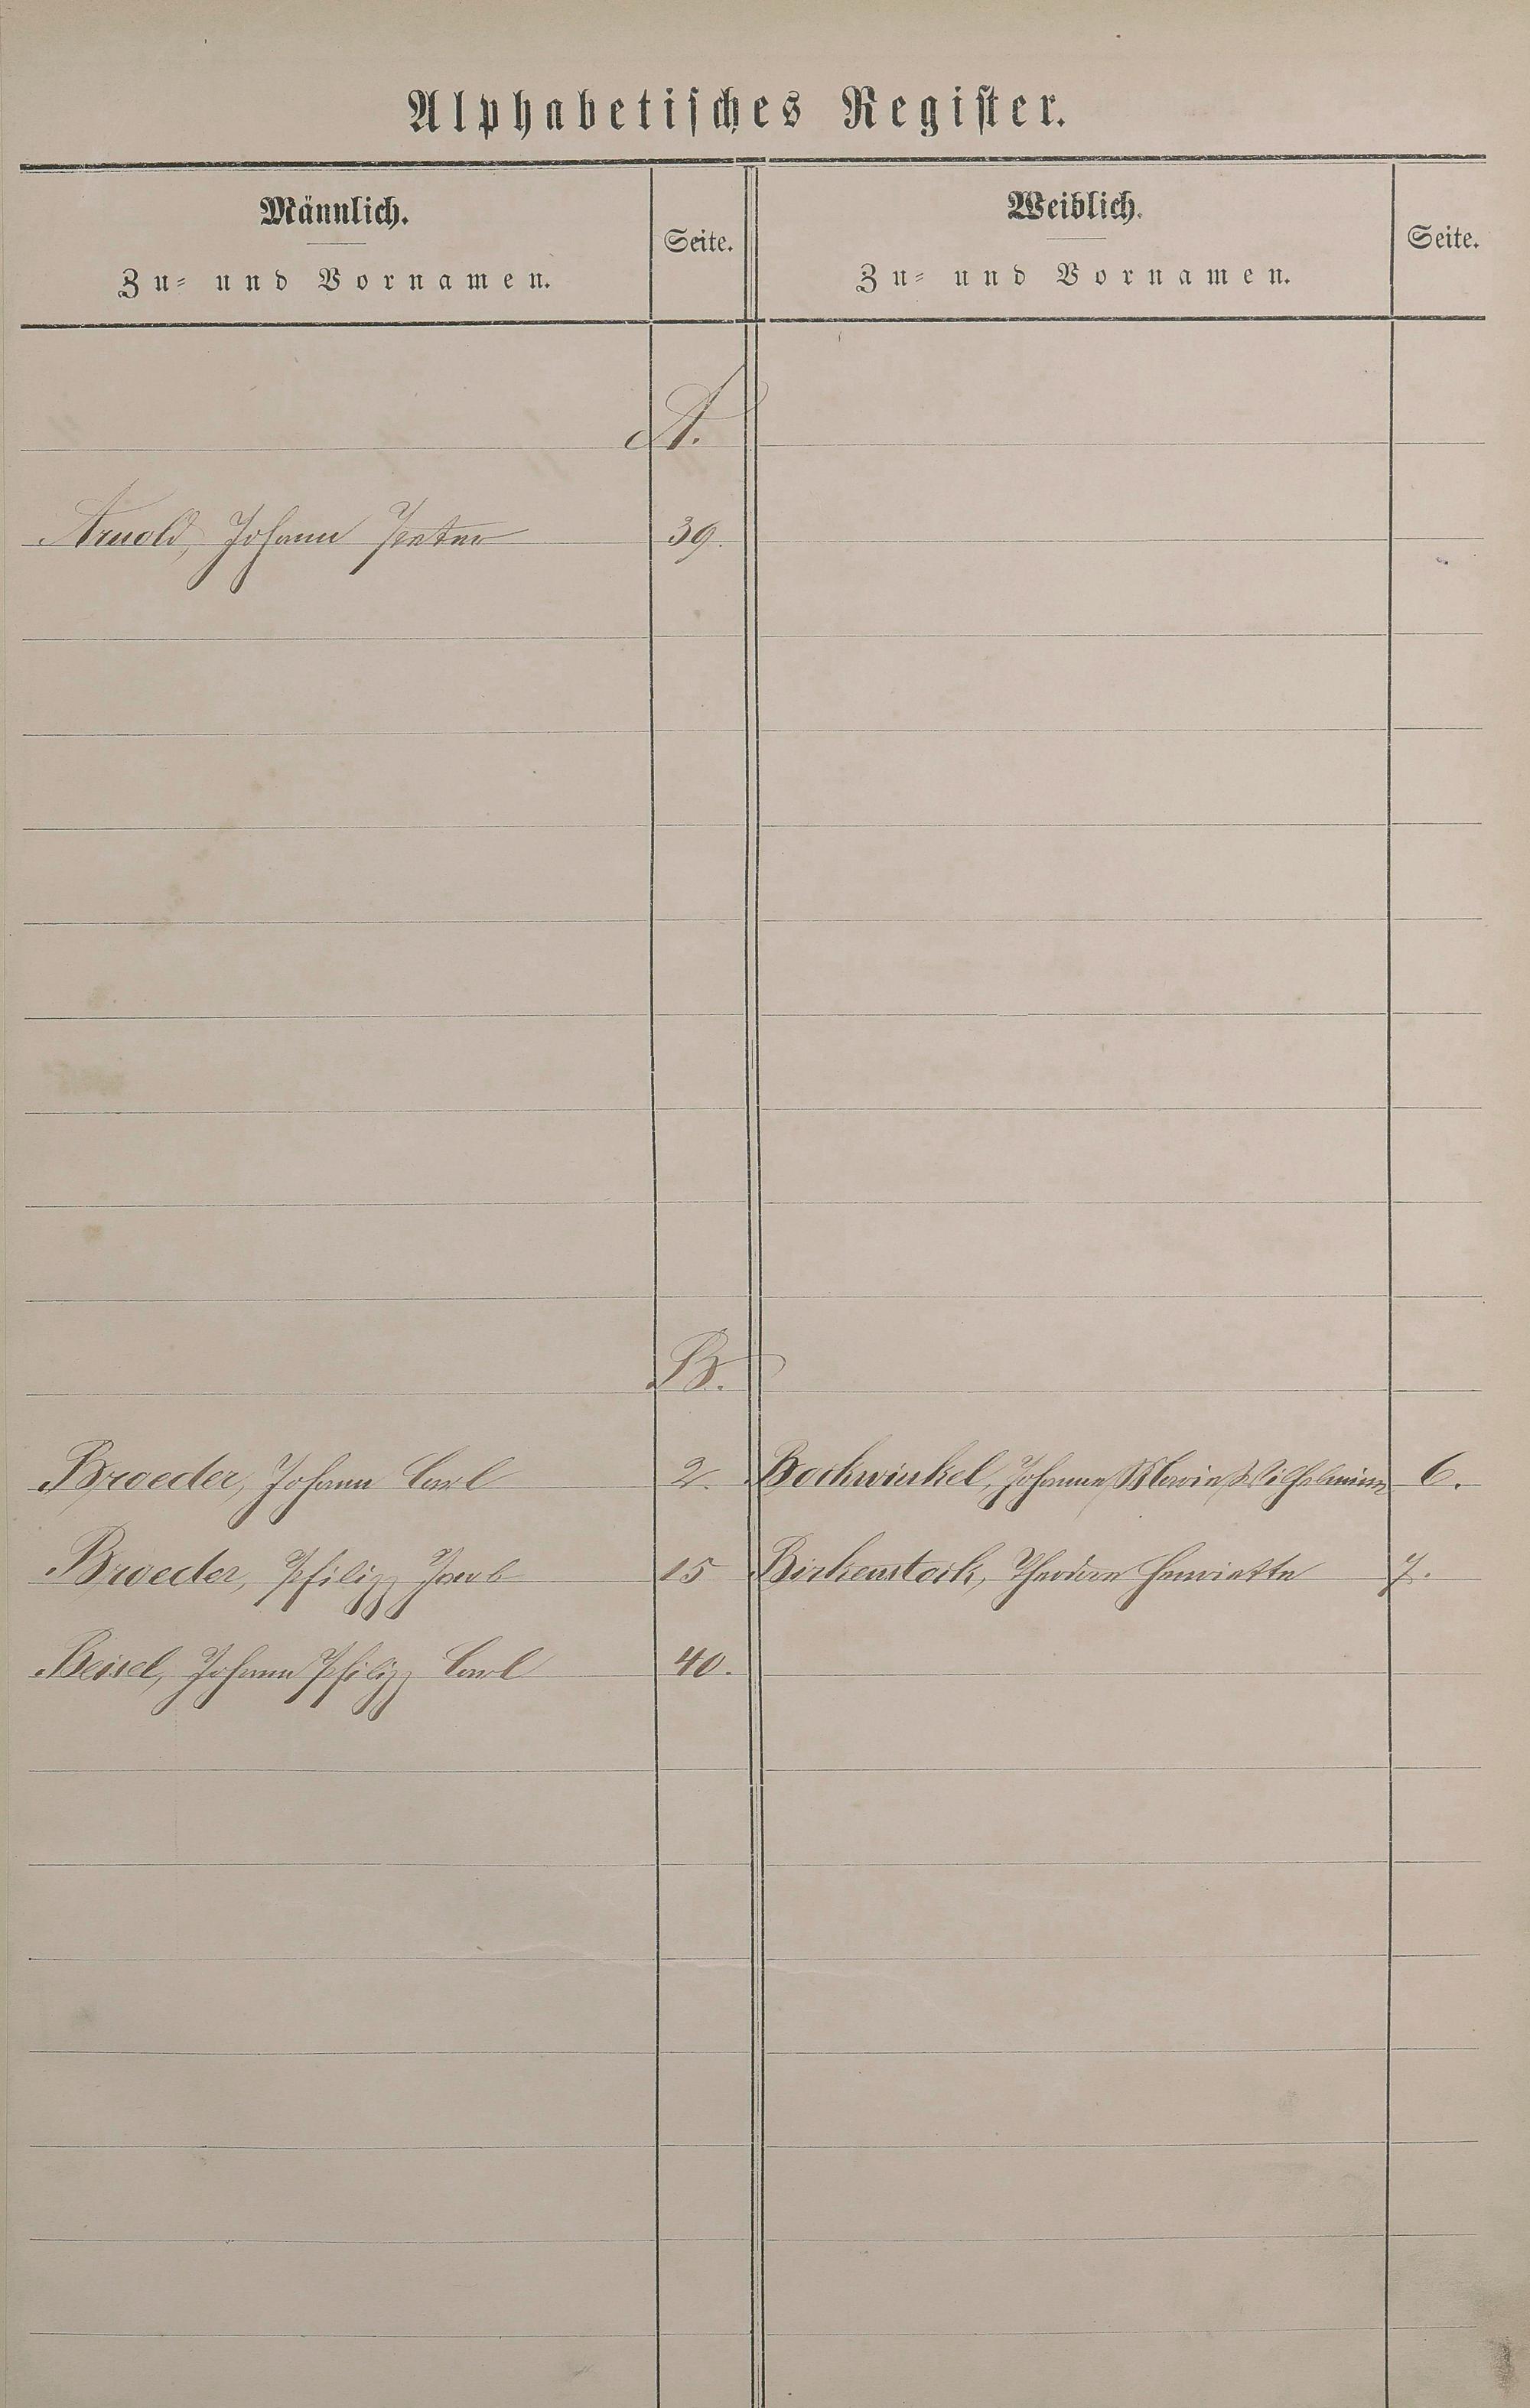 Alphabetisches Register.
Männlich. Seite. Weiblich. Seite.
Zu- und Vornamen. Zu- und Vornamen.
A.
Arnold, Johann Peter 39.
B.
Broeder, Johann Carl 2. Bockwinkel, Johanne Marie Wilhelmine 6.
Broeder, Philipp Jacob 15 Birkenstock, Theodore Henriette 7.
Beisel, Johann Philipp Carl 40.